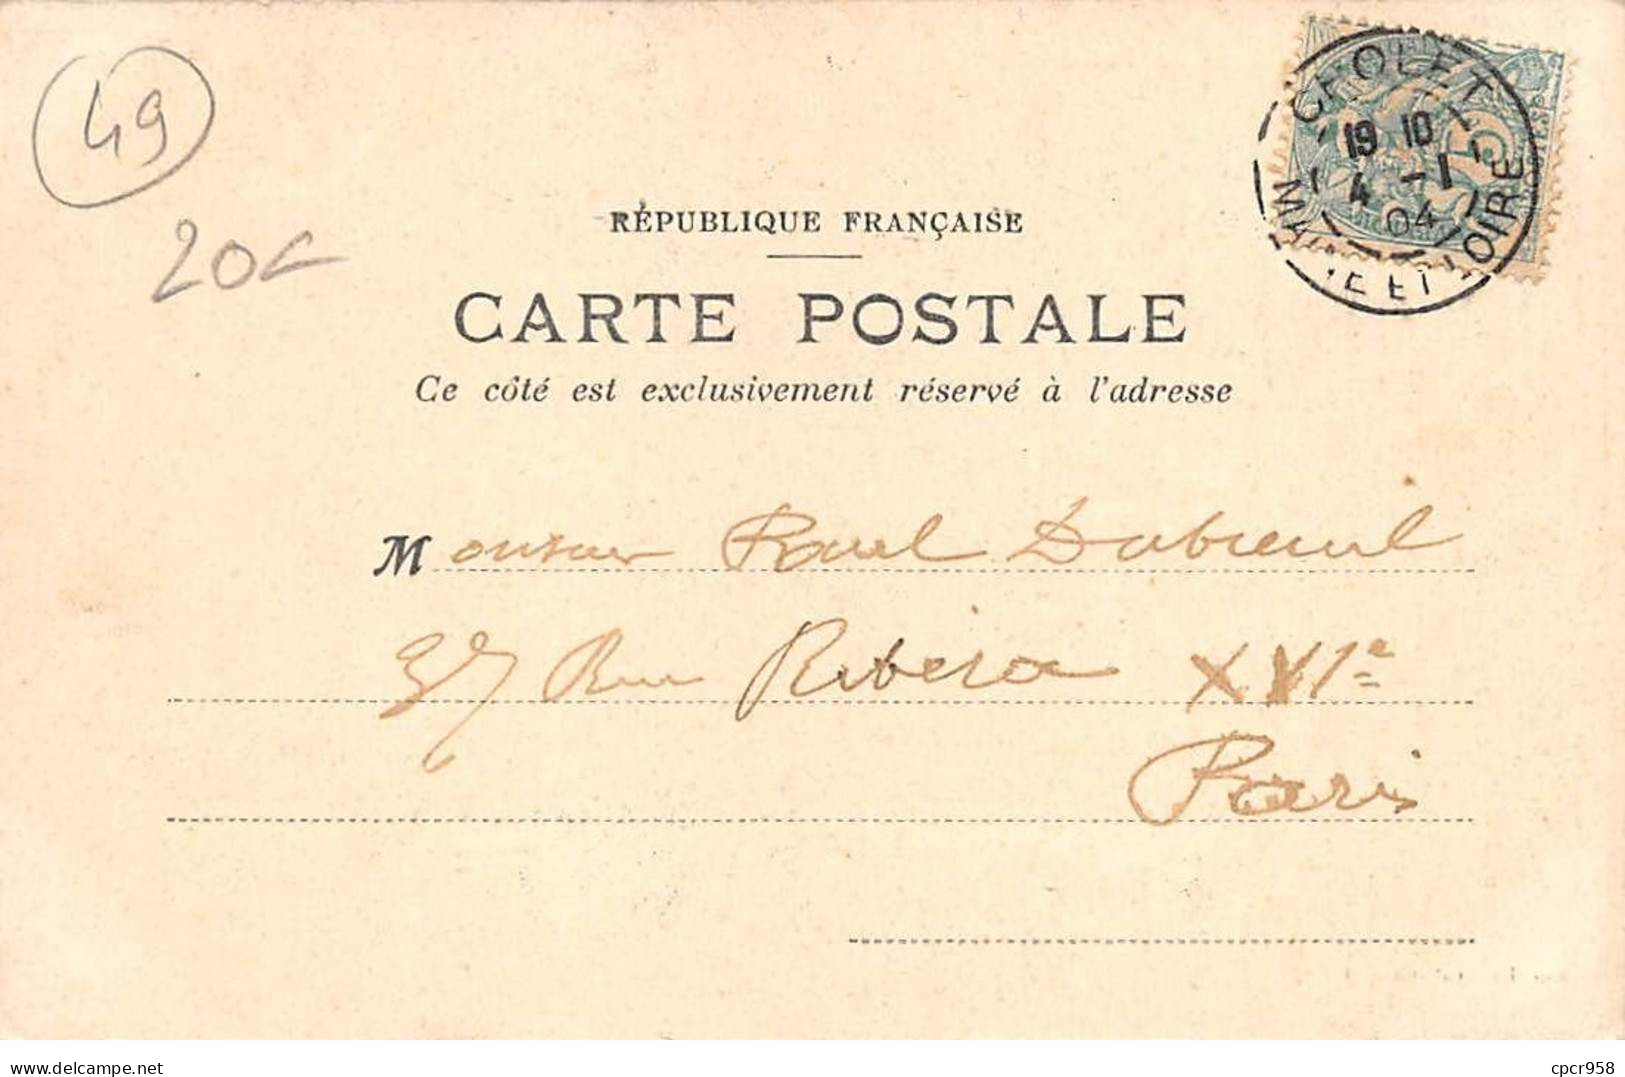 49
20€
CHOLET
19 10
4 -1
04
MAINE ET LOIRE
RÉPUBLIQUE FRANÇAISE
CARTE POSTALE
Ce côté est exclusivement réservé à l'adresse
Monsieur Paul Dubreuil
37 Rue Ribera XVIe
Paris
delcampe.net
cpcr958